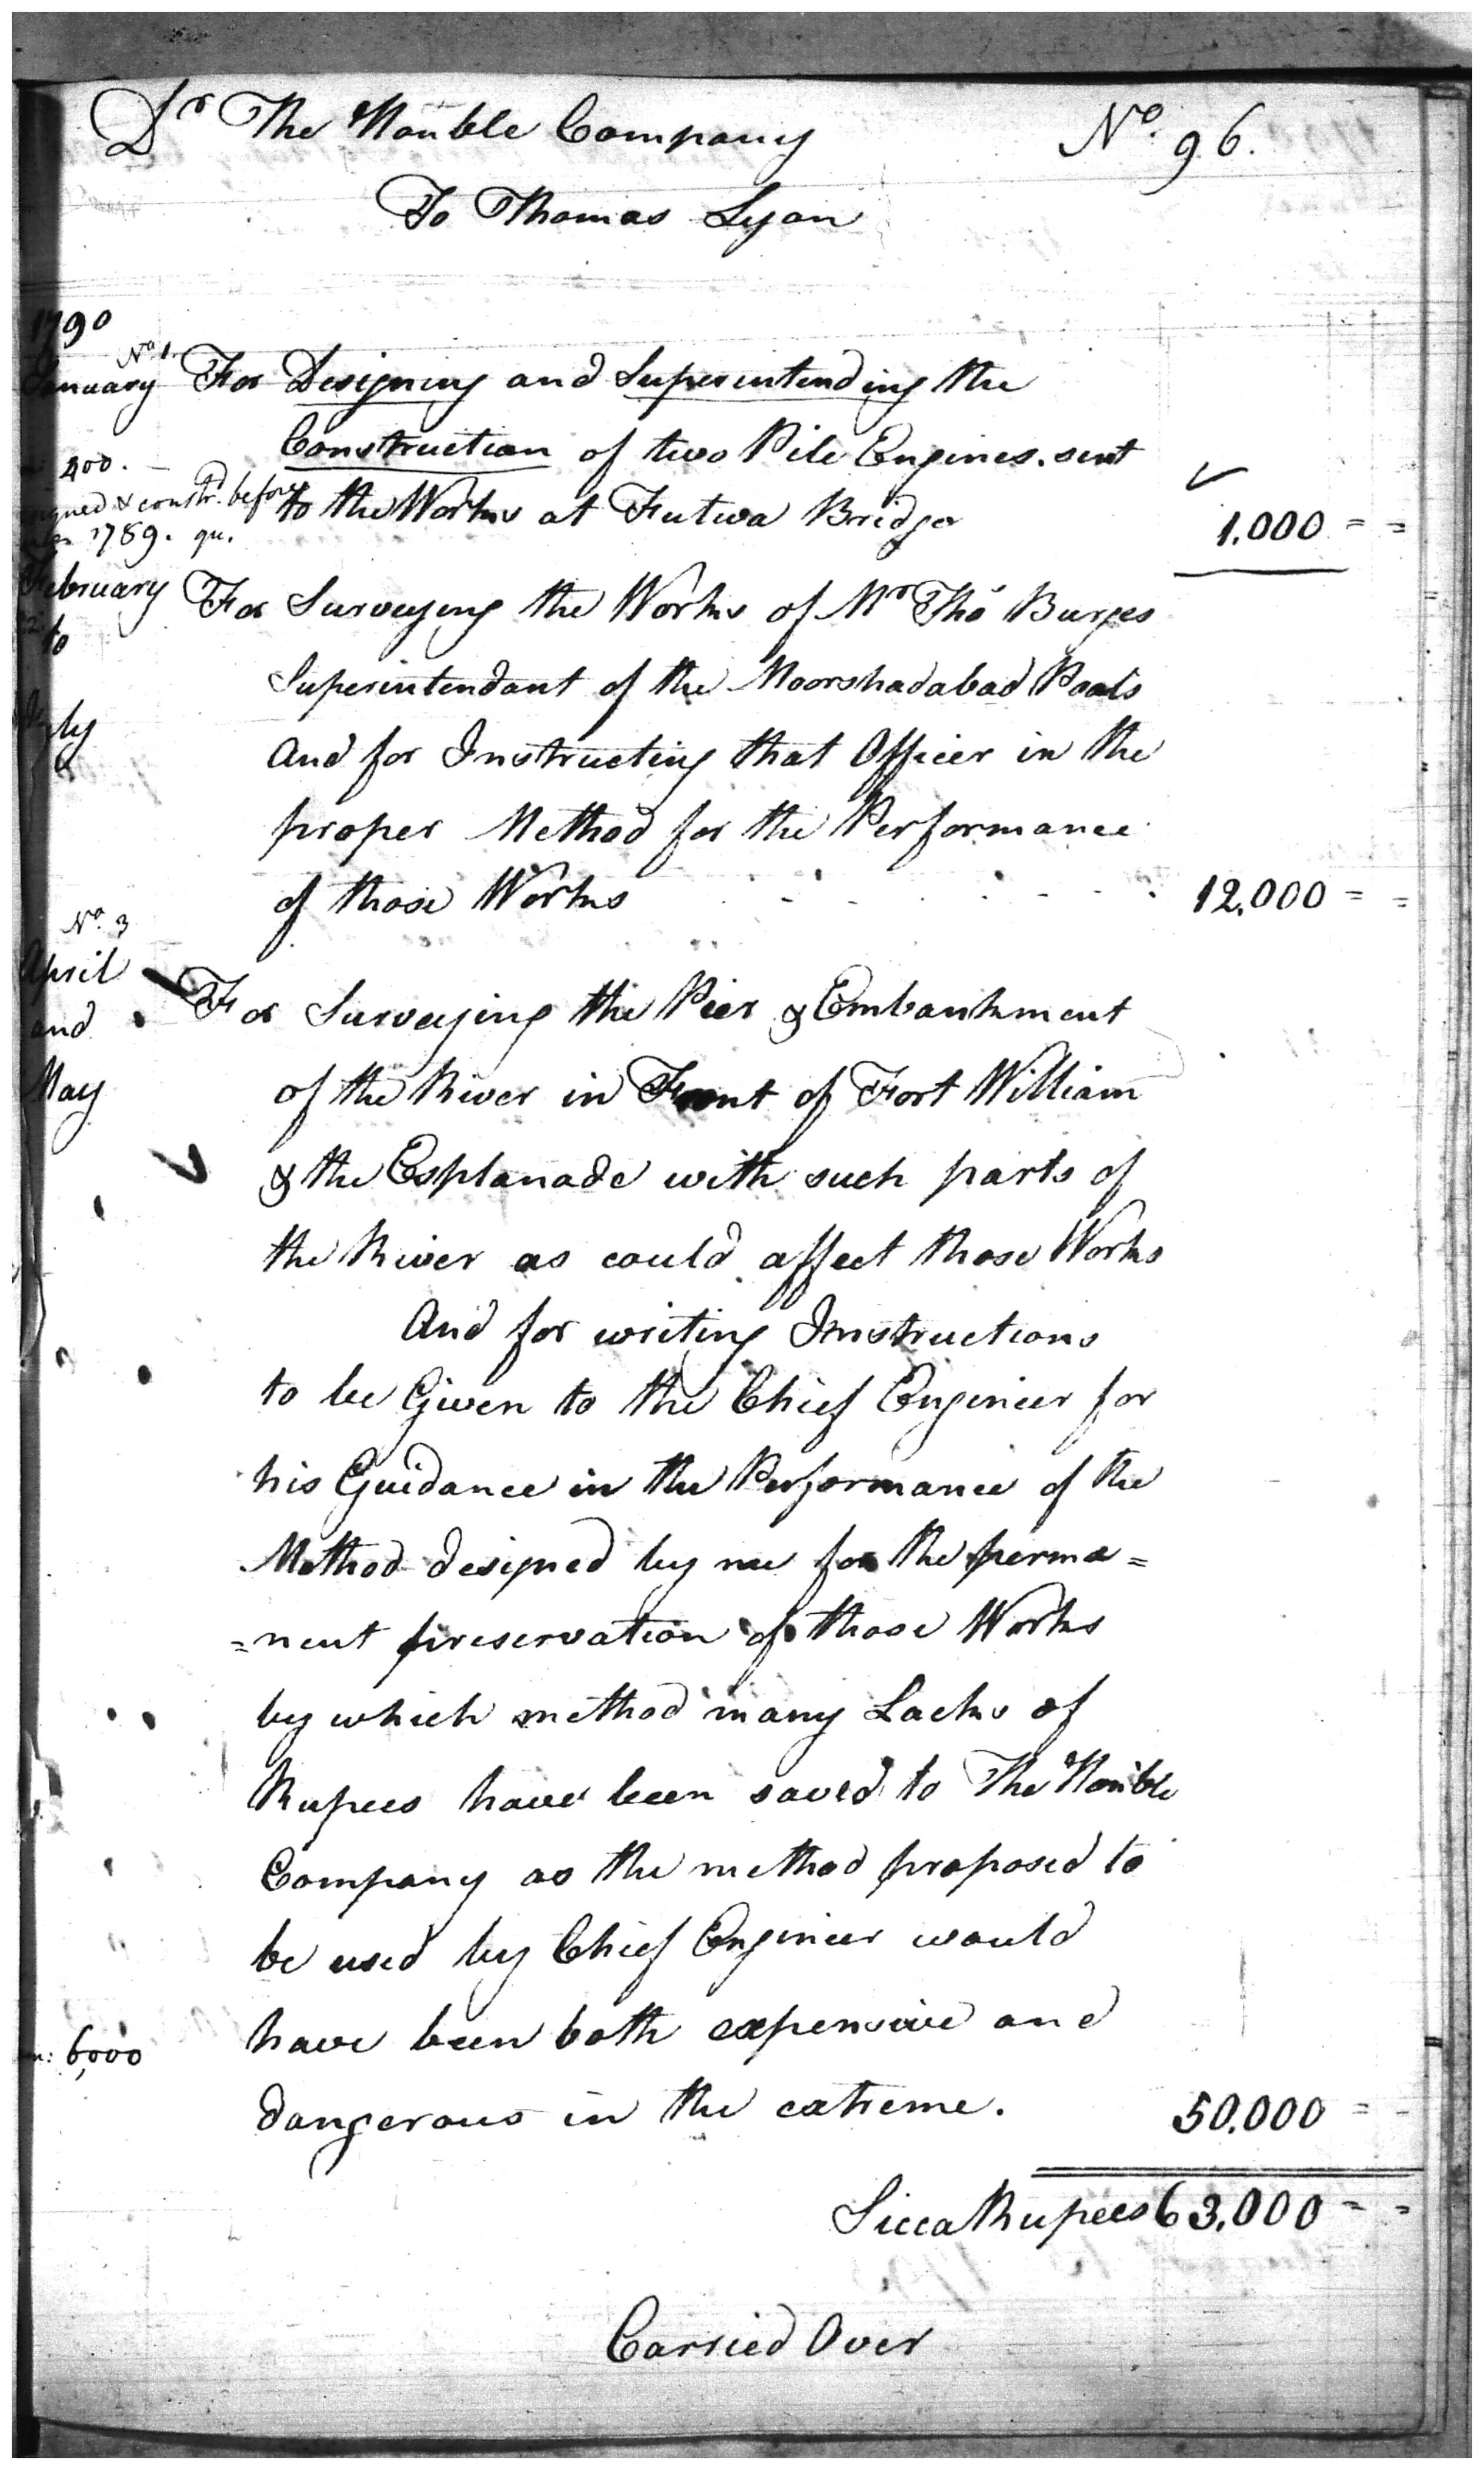 Dr The Honble Company No. 96.
To Thomas Lyon
1790
No. 1.
January For Designing and Superintending the
Construction of two Pile Engines sent
400.
signed & constrd. before to the Works at Futwa Bridge 1.000 = =
1789. qu.
February For Surveying the Works of Mr Thos Burges
to
Superintendant of the Moorshadabad Pools
July
And for Instructing that Officer in the
proper Method for the Performance
of those Works 12.000 = =
No. 3
April For Surveying the Pier & Embankment
and
May of the River in Front of Fort William
& the Esplanade with such parts of
the River as could affect those Works
And for writing Instructions
to be Given to the Chief Engineer for
his Guidance in the Performance of the
Method designed by me for the perma=
=nent preservation of those Works
by which method many Lacks of
Rupees have been saved to The Honble
Company as the method proposed to
be used by Chief Engineer would
have been both expensive and
6,000
dangerous in the extreme. 50.000 = -
Sicca Rupees 63.000 = =
Carried Over